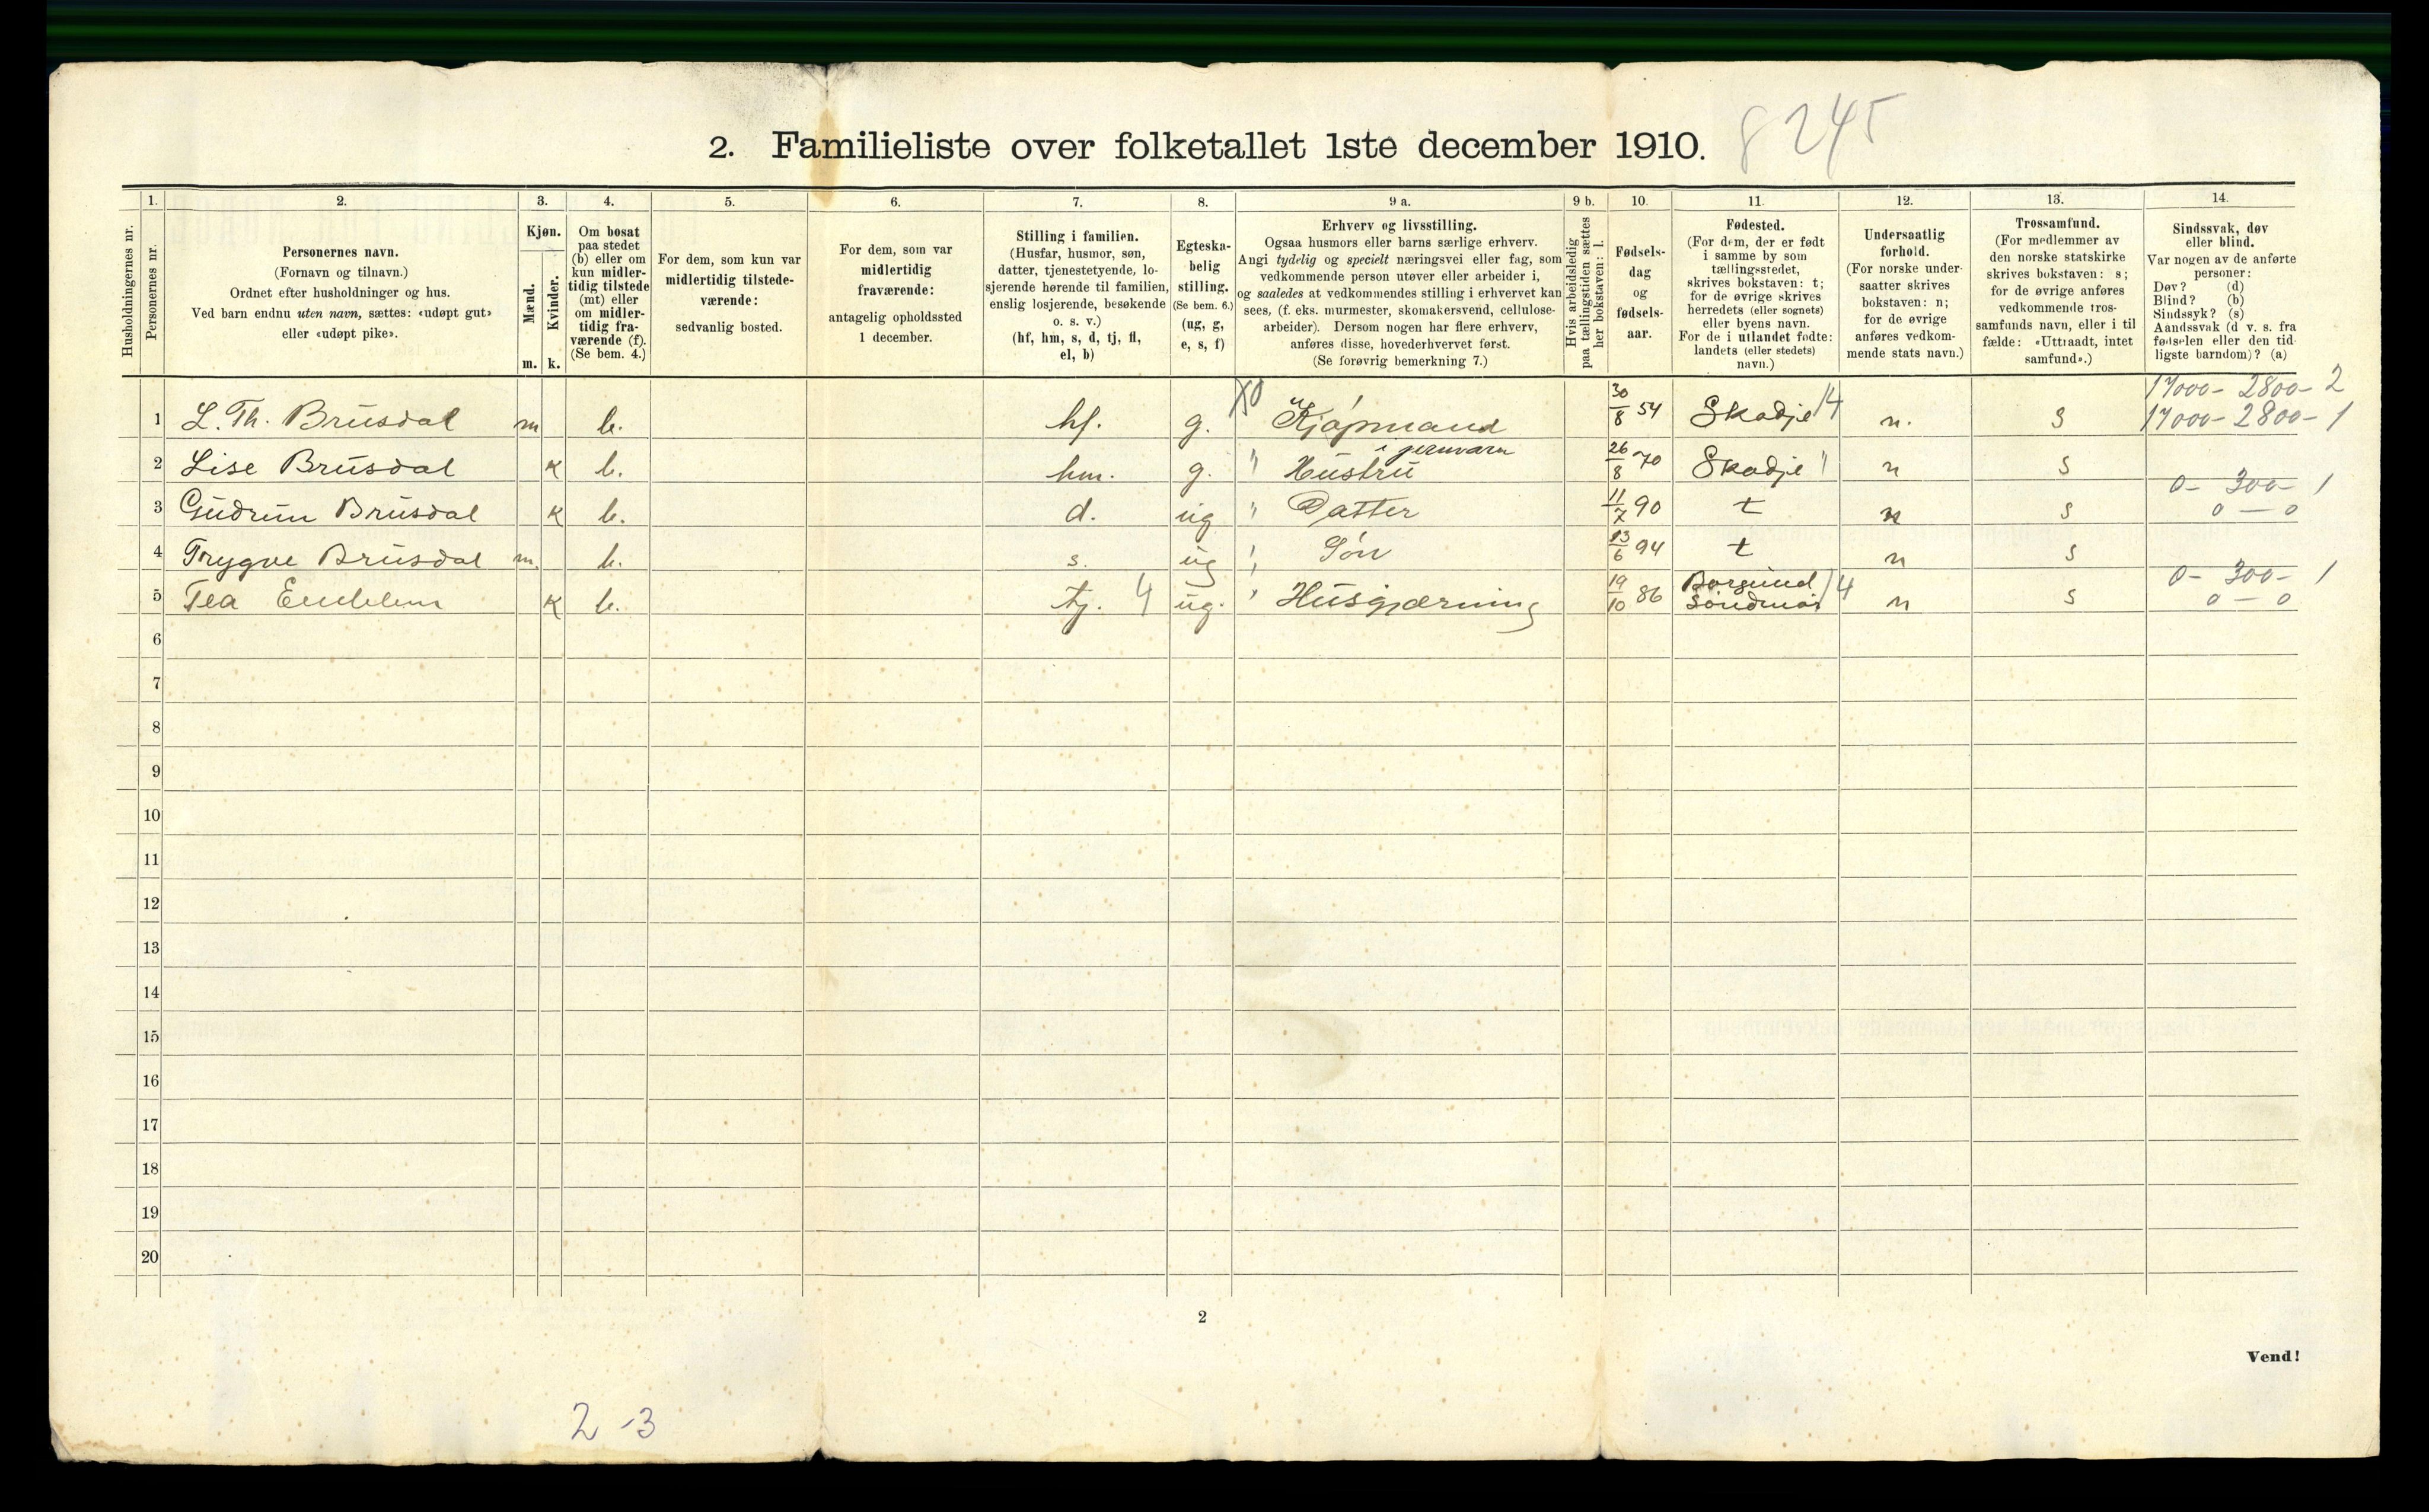 2. Familieliste over folketallet 1ste december 1910. 8245
Husholdningernes nr.
1.
Personernes nr.
2.
Personernes navn.
(Fornavn og tilnavn.)
Ordnet efter husholdninger og hus.
Ved barn endnu uten navn, sættes: «udøpt gut»
eller «udøpt pike».
3.
Kjøn.
Mænd.
m.
Kvinder.
k.
4.
Om bosat
paa stedet
(b) eller om
kun midler-
tidig tilstede
(mt) eller
om midler-
tidig fra-
værende (f).
(Se bem. 4.)
5.
For dem, som kun var
midlertidig tilstede-
værende:
sedvanlig bosted.
6.
For dem, som var
midlertidig
fraværende:
antagelig opholdssted
1 december.
7.
Stilling i familien.
(Husfar, husmor, søn,
datter, tjenestetyende, lo-
sjerende hørende til familien,
enslig losjerende, besøkende
o. s. v.)
(hf, hm, s, d, tj, fl,
el, b)
8.
Egteska-
belig
stilling.
(Se bem. 6.)
(ug, g,
e, s, f)
9 a.
Erhverv og livsstilling.
Ogsaa husmors eller barns særlige erhverv.
Angi tydelig og specielt næringsvei eller fag, som
vedkommende person utøver eller arbeider i,
og saaledes at vedkommendes stilling i erhvervet kan
sees, (f. eks. murmester, skomakersvend, cellulose-
arbeider). Dersom nogen har flere erhverv,
anføres disse, hovederhvervet først.
(Se forøvrig bemerkning 7.)
9 b.
Hvis arbeidsledig
paa tællingstiden sættes
her bokstaven: l.
10.
Fødsels-
dag
og
fødsels-
aar.
11.
Fødested.
(For dem, der er født
i samme by som
tællingsstedet,
skrives bokstaven: t;
for de øvrige skrives
herredets (eller sognets)
eller byens navn.
For de i utlandet fødte:
landets (eller stedets)
navn.)
12.
Undersaatlig
forhold.
(For norske under-
saatter skrives
bokstaven: n;
for de øvrige
anføres vedkom-
mende stats navn.)
13.
Trossamfund.
(For medlemmer av
den norske statskirke
skrives bokstaven: s;
for de øvrige anføres
vedkommende tros-
samfunds navn, eller i til-
fælde: «Uttraadt, intet
samfund».)
14.
Sindssvak, døv
eller blind.
Var nogen av de anførte
personer:
Døv? (d)
Blind? (b)
Sindssyk? (s)
Aandssvak (d v. s. fra
fødselen eller den tid-
ligste barndom)? (a)
17000- 2800- 2
1 L. Th. Brusdal m b. hf. g. Kjøpmand i jernvarer 30/8 54 Skodje 14 n. s 17000- 2800- 1
2 Lise Brusdal k b. hm. g. " Hustru 26/8 70 Skodje " n s
0- 300- 1
3 Gudrun Brusdal k b. d. ug " Datter 11/7 90 t n s 0 - 0
4 Trygve Brusdal m. b. s. ug " Søn 13/6 94 t n s
0- 300- 1
5 Tea Emblem k b. tj. 4 ug. " Husgjærning 19/10 86 Borgund Söndmör 14 n s 0 - 0
6
7
8
9
10
11
12
13
14
15
16
17
18
19
20
2
Vend!
2-3